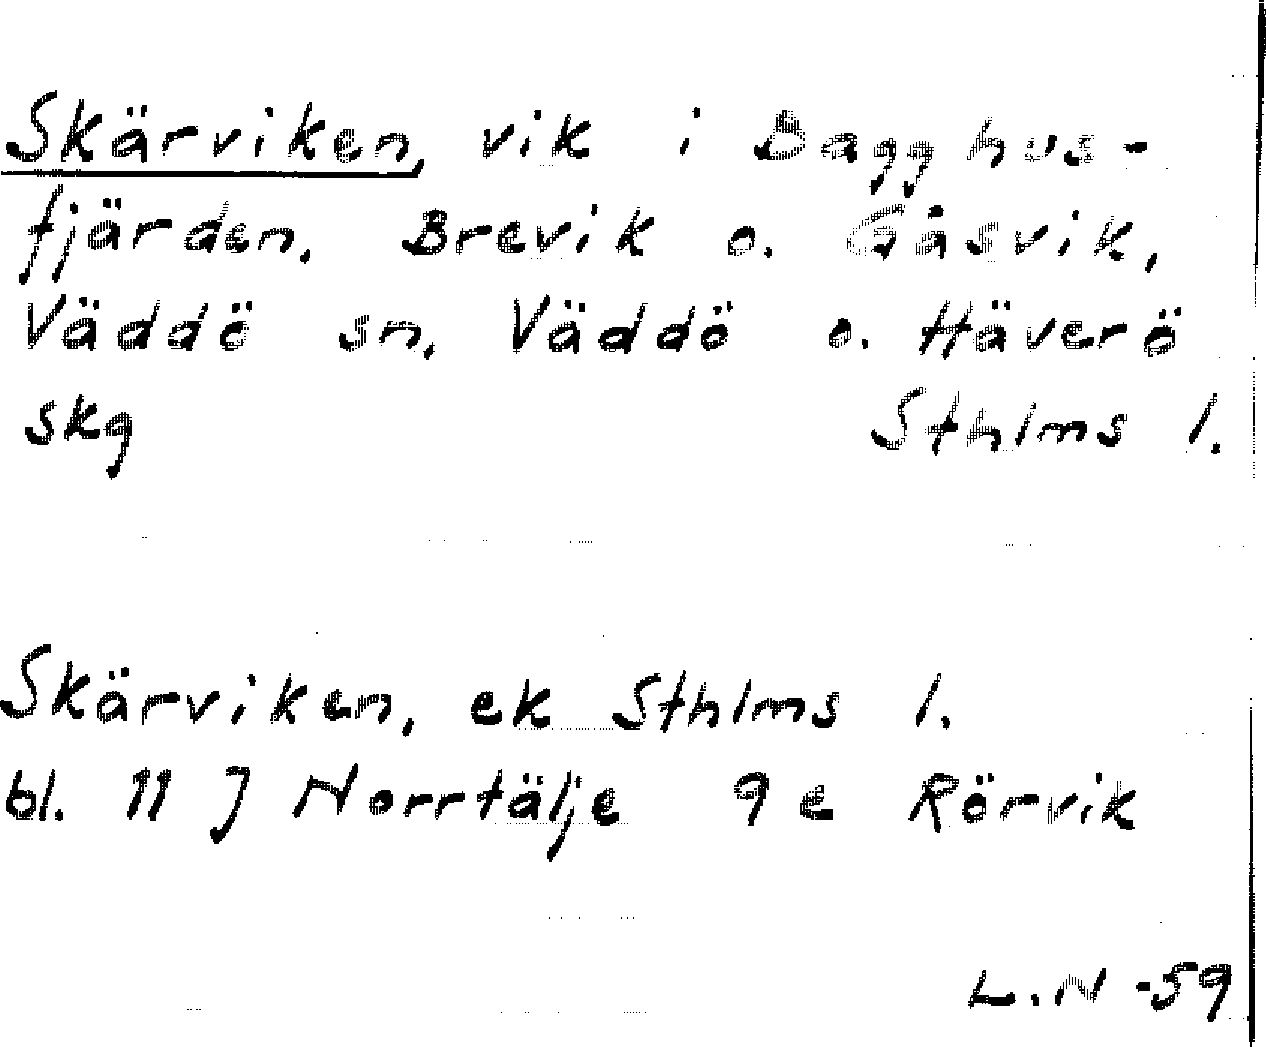 Skärviken, vik i Bagghus-
fjärden, Brevik o. Gåsvik,
Väddö sn, Väddö o. Häverö
skg Sthlms l.
Skärviken, ek Sthlms l.
bl. 11 J Norrtälje 9 e Rörvik
L.N -59